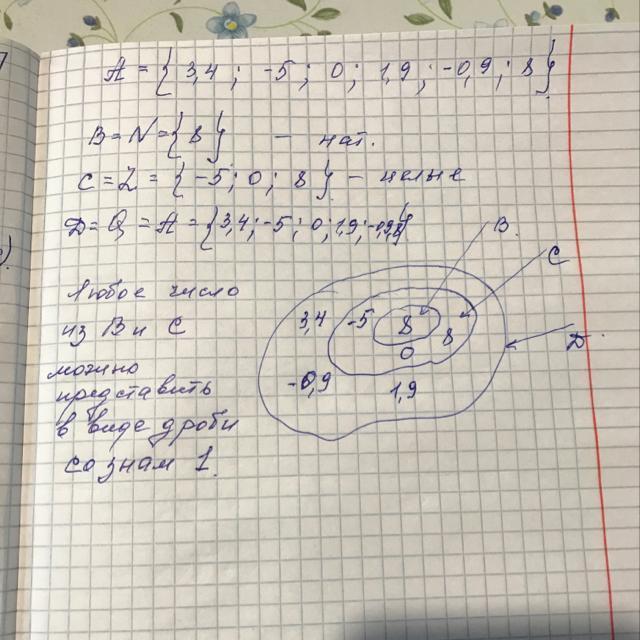 A = { 3,4 ; -5 ; 0 ; 1,9 ; -0,9 ; 8 }
B = N = { 8 } — нат.
C = Z = { -5 ; 0 ; 8 } — целые
D = Q = A = { 3,4 ; -5 ; 0 ; 1,9 ; -0,9 8 }
B
C
D
Любое число
из B и C
можно
представить
в виде дроби
со знам 1.
3,4 -5 8 8
0
-0,9 1,9